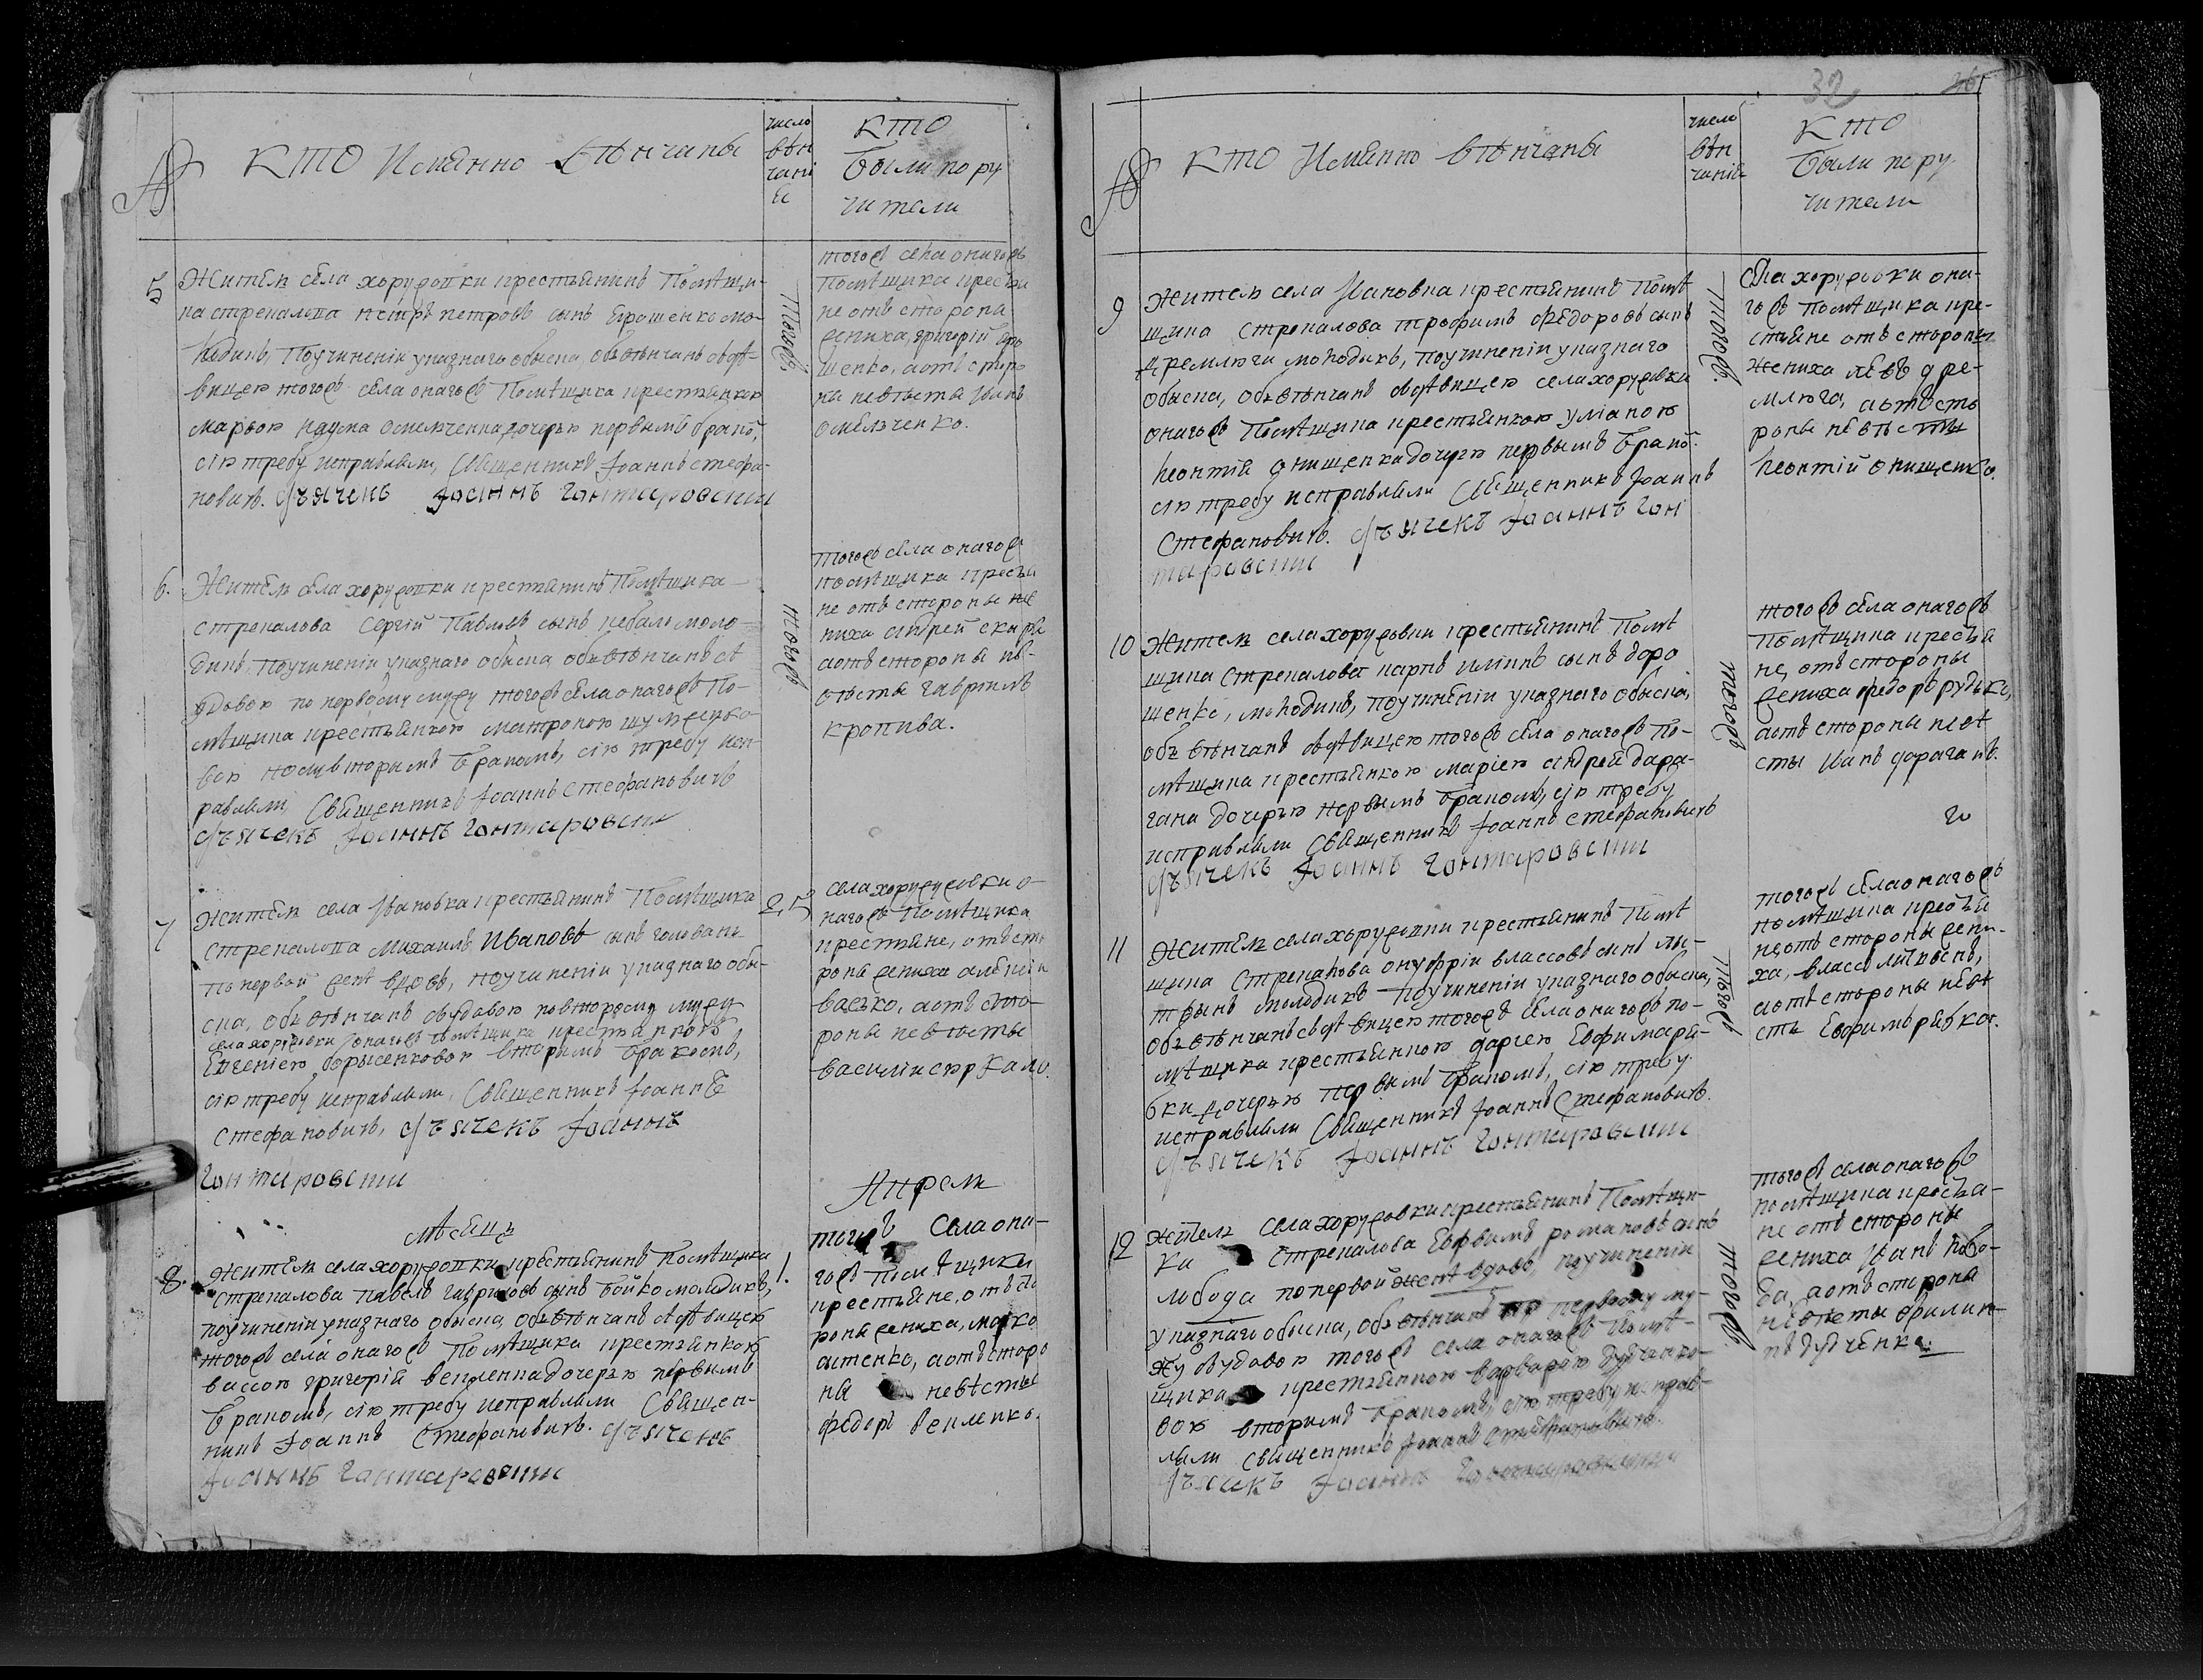 №
Кто Имянно вѣнчаны
число
вѣн
чані
я
Кто
были пору
чители
5
Жители села хоружовки крестьянинъ Помѣщи-
ка стрекалова петръ петровъ сынъ Ярошенко мо-
лодикъ, Поучиненіи указнаго обыска, обвѣнчанъ здѣ-
вицею тогожъ села онагожъ Помѣщика крестянкою
марьею наума омелченка дочерью первымъ бракомъ,
сію требу исправляли, Священникъ Іоаннъ стефа-
новичъ. Дъячекъ Іоаннъ Гонтаровскій
Тогожъ
тогожъ села онагожъ
Помѣщика крестья
не отъ сторона
жениха, григорій яро
шенко, аотъ сторо
ны невѣсты Иванъ
омелченко.
6.
Жители села хоружовки крестьянинъ Помѣщика
стрекалова Сергій Павловъ сынъ моло-
дикъ, Поучиненіи указнаго обыска обвѣнчанъ съ
удовою по первому мужу тогожъ села онагожъ По-
мѣщика крестьянкою матроною
вою вторымъ бракомъ, сію требу исп-
равляли, Священникъ Іоаннъ стефановичъ
Дъячекъ Іоаннъ Гонтаровскій
тогожъ
тогожъ села онагожъ
помѣщика крестья
не отъ стороны же
ниха андрей
аотъ стороны не-
вѣсты гаврилъ
кропива.
7
Жители села Ивановка крестьянинъ Помѣщика
стрекалова михаилъ Ивановъ сынъ головань
по первой женѣ вдовъ, поучиненіи указнаго обы-
ска, обвѣнчанъ зудовою повторому мужу
села хоружовки онагожъ помѣщика крестянкою
Евгеніею борысенковою вторымъ бракомъ,
сію требу исправляли, Священникъ Іоаннъ
Стефановичъ, Дъячекъ Іоаннъ
Гонтаровскій
25
села хоружовки о-
нагожъ Помѣщика
крестьяне, отъ сто
роны жениха алексій
васько, аотъ сто-
роны невѣсты
василій
мѣсяцъ
Апрель
8.
Жители села хоружовки крестьянинъ Помѣщика
стрекалова павелъ гавриловъ сынъ бойко молодикъ,
поучиненіи указнаго обыска, обвѣнчанъ здѣвицею
тогожъ села онагожъ Помѣщика крестьянкою
вассою григорій векленка дочерью первымъ
бракомъ, сію требу исправляли Священ-
никъ Іоаннъ Стефановичъ. Дъячекъ
Іоаннъ Гонтаровскій
1.
тогожъ села она-
гожъ помѣщика
крестьяне, отъ сто
роны жениха, марко
аотъ сторо
ны невѣсты
федоръ векленко.
32
№
Кто Имянно вѣнчаны
число
вѣн
чанія
Кто
были пору
чители
9
Жители села Ивановка крестьянинъ Помѣ
щика Стрекалова трофимъ Федоровъ сынъ
дремлюги молодикъ, поучиненіи указнаго
обыска, обвѣнчанъ здѣвицею села хоружовки
онагожъ Помѣщика крестьянкою уліаною
леонтій онищенка дочерю первымъ бракомъ.
сію требу исправляли Священникъ Іоаннъ
Стефановичъ. Дъячекъ Іоаннъ Гон
таровскій
тогожъ.
села хоружовки она-
гожъ помѣщика кре-
стьяне отъ стороны
жениха левъ дре-
млюга, аотъ сто
роны невѣсты
леонтій онищенко.
10
Жители села хоружовки крестьянинъ Помѣ
щика Стрекалова карпъ сынъ доро
шенко, молодикъ, поучиненіи указнаго обыска,
обвѣнчанъ здѣвицею тогожъ села онагожъ По-
мѣщика крестьянкою маріею андрей дара-
гана дочерью первымъ бракомъ, сію требу
исправляли Священникъ Іоаннъ стефановичъ
Дъячекъ Іоаннъ Гонтаровскій
тогожъ
тогожъ села онагожъ
Помѣщика крестья
не, отъ стороны
жениха федоръ рудько,
аотъ стороны невѣ
сты Иванъ дараганъ.
11
Жители села хоружовки крестьянинъ Помѣ
щика Стрекалова онуфрій влассовъ сынъ ли-
твынъ молодикъ Поучиненіи указнаго обыска,
обвѣнчанъ здѣвицею тогожъ села онагожъ по-
мѣщика крестьянкою даріею Евфима ры-
бки дочерью первымъ бракомъ, сію требу
исправляли Священникъ Іоаннъ Стефановичъ.
Дъячекъ Іоаннъ Гонтаровскій
тогожъ
тогожъ села онагожъ
помѣщика крестья
не отъ стороны жени-
ха, влассъ литвынъ,
аотъ стороны невѣ
сты Евфимъ рыбка.
12
Жители села хоружовки крестьянинъ Помѣщи-
ка Стрекалова Евфимъ романовъ сынъ
лобода попервой женѣ вдовъ, поучиненіи
указнаго обыска, обвѣнчанъ по первому му-
жу зудовою тогожъ села онагожъ Помѣ-
щика крестьянкою варварою дудченко-
вою вторымъ бракомъ, сію требу исправ-
ляли священникъ Іоаннъ Стефановичъ.
Дъячекъ Іоаннъ Гонтаровскій
тогожъ.
тогожъ села онагожъ
помѣщика крестья-
не отъ стороны
жениха Иванъ лобо-
да, аотъ стороны
невѣсты
дудченко.